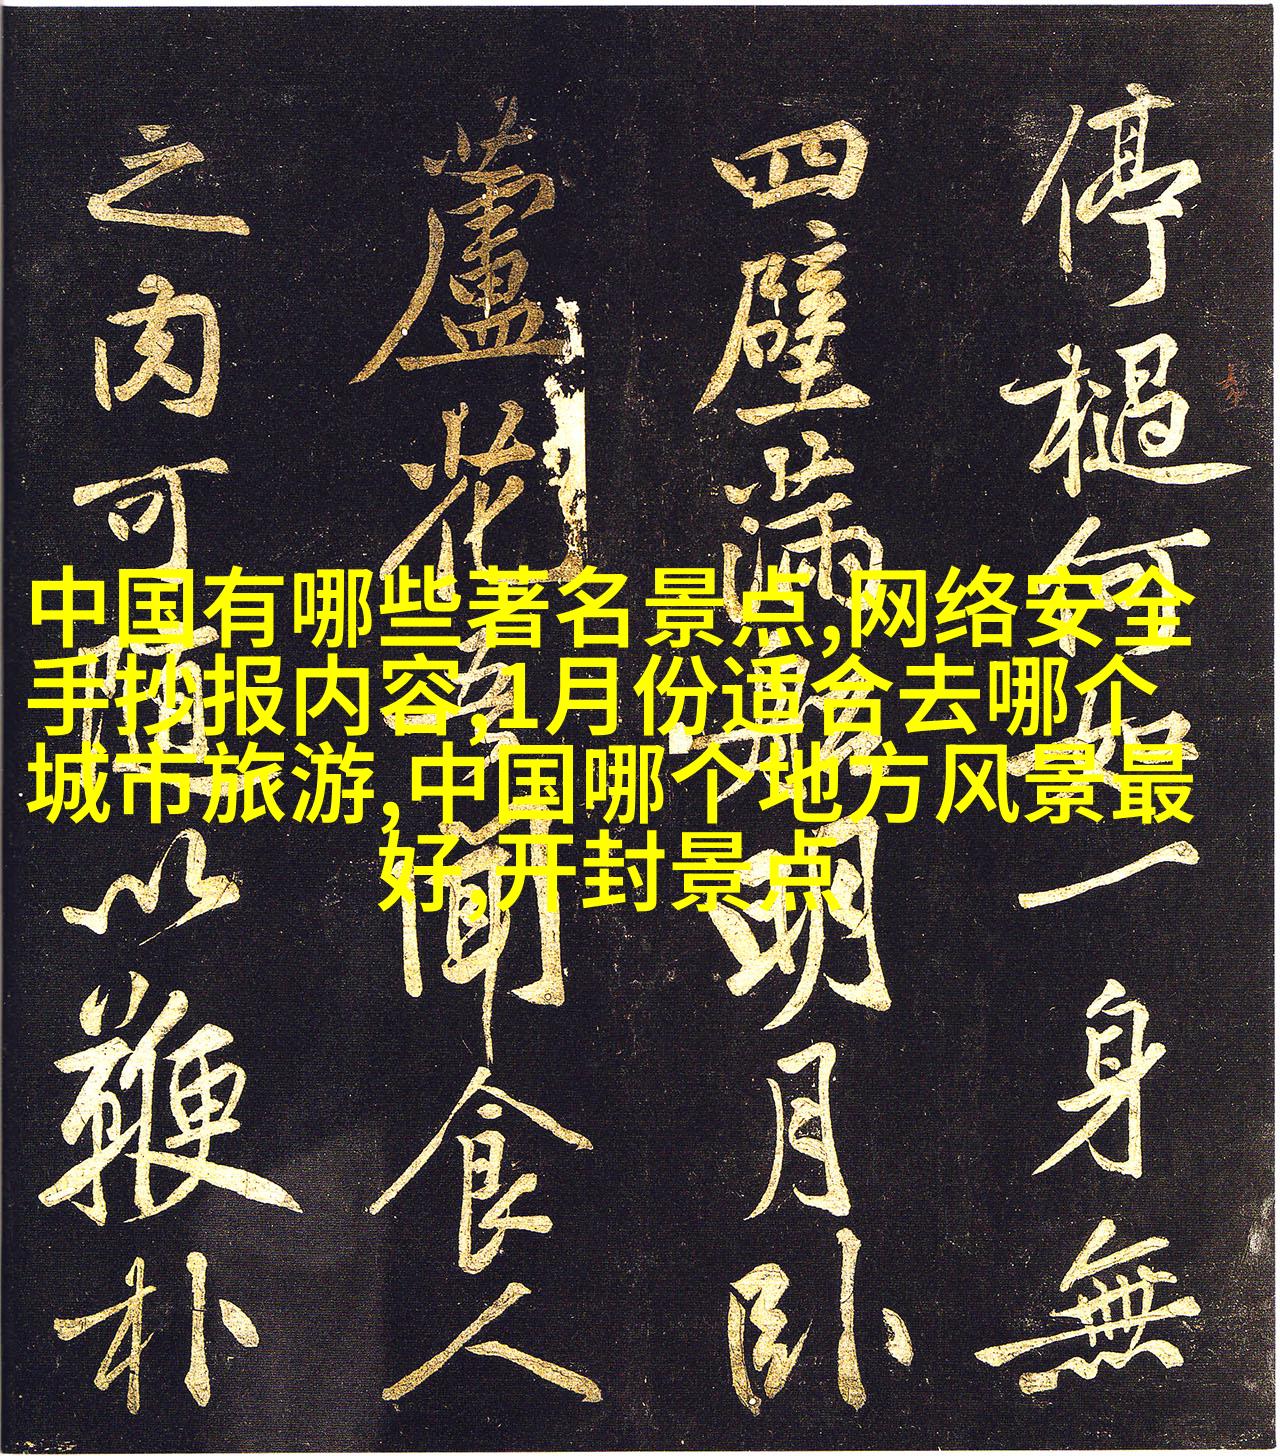 中国有哪些著名景点,网络安全
手抄报内容,1月份适合去哪个
城市旅游,中国哪个地方风景最
好,开封景点
停檛何如一身無
四壁滿船明月臥
蘆花吾聞食人
之肉可隨以鞭朴